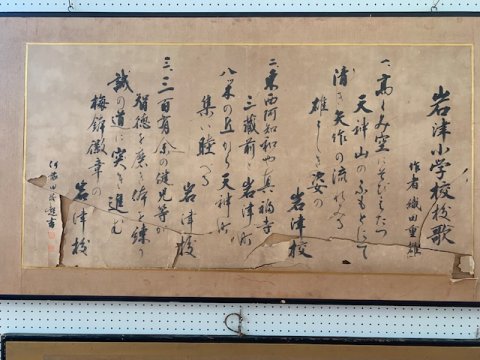 岩津小学校校歌
作者 織田重雄
一、高くみ空にそびえたつ
天神山のふもとにて
清き矢作の流れみる
雄々しき姿の
岩津校
二、東西阿知和や真福寺
三蔵前岩津町
八ツ木の丘から天神町
集い睦べる
岩津校
三、三百有余の健児等が
智徳を磨き体を練り
誠の道に突き進む
梅鉢徽章の
岩津校